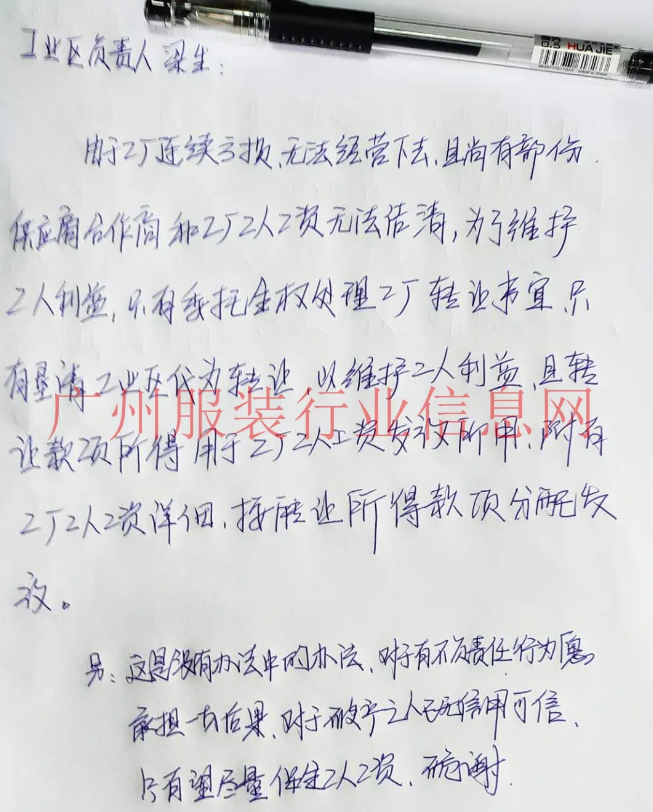 0.5 HUAJIE
工业区负责人 梁生:
由于工厂连续亏损,无法经营下去,且尚有部份
供应商合作商和工厂工人工资无法结清,为了维护
工人利益,只有委托全权处理工厂转让事宜,只
有垦请工业区代为转让,以维护工人利益,且转
广州服装行业信息网
让款项所得用于工厂工人工资发放所用,附有
工厂工人工资详细,按转让所得款项分配发
放。
另:这是没有办法中的办法,对于有不负责任行为愿
承担一切后果,对于破产之人已无信用可信,
只有望尽量保住工人工资,谢